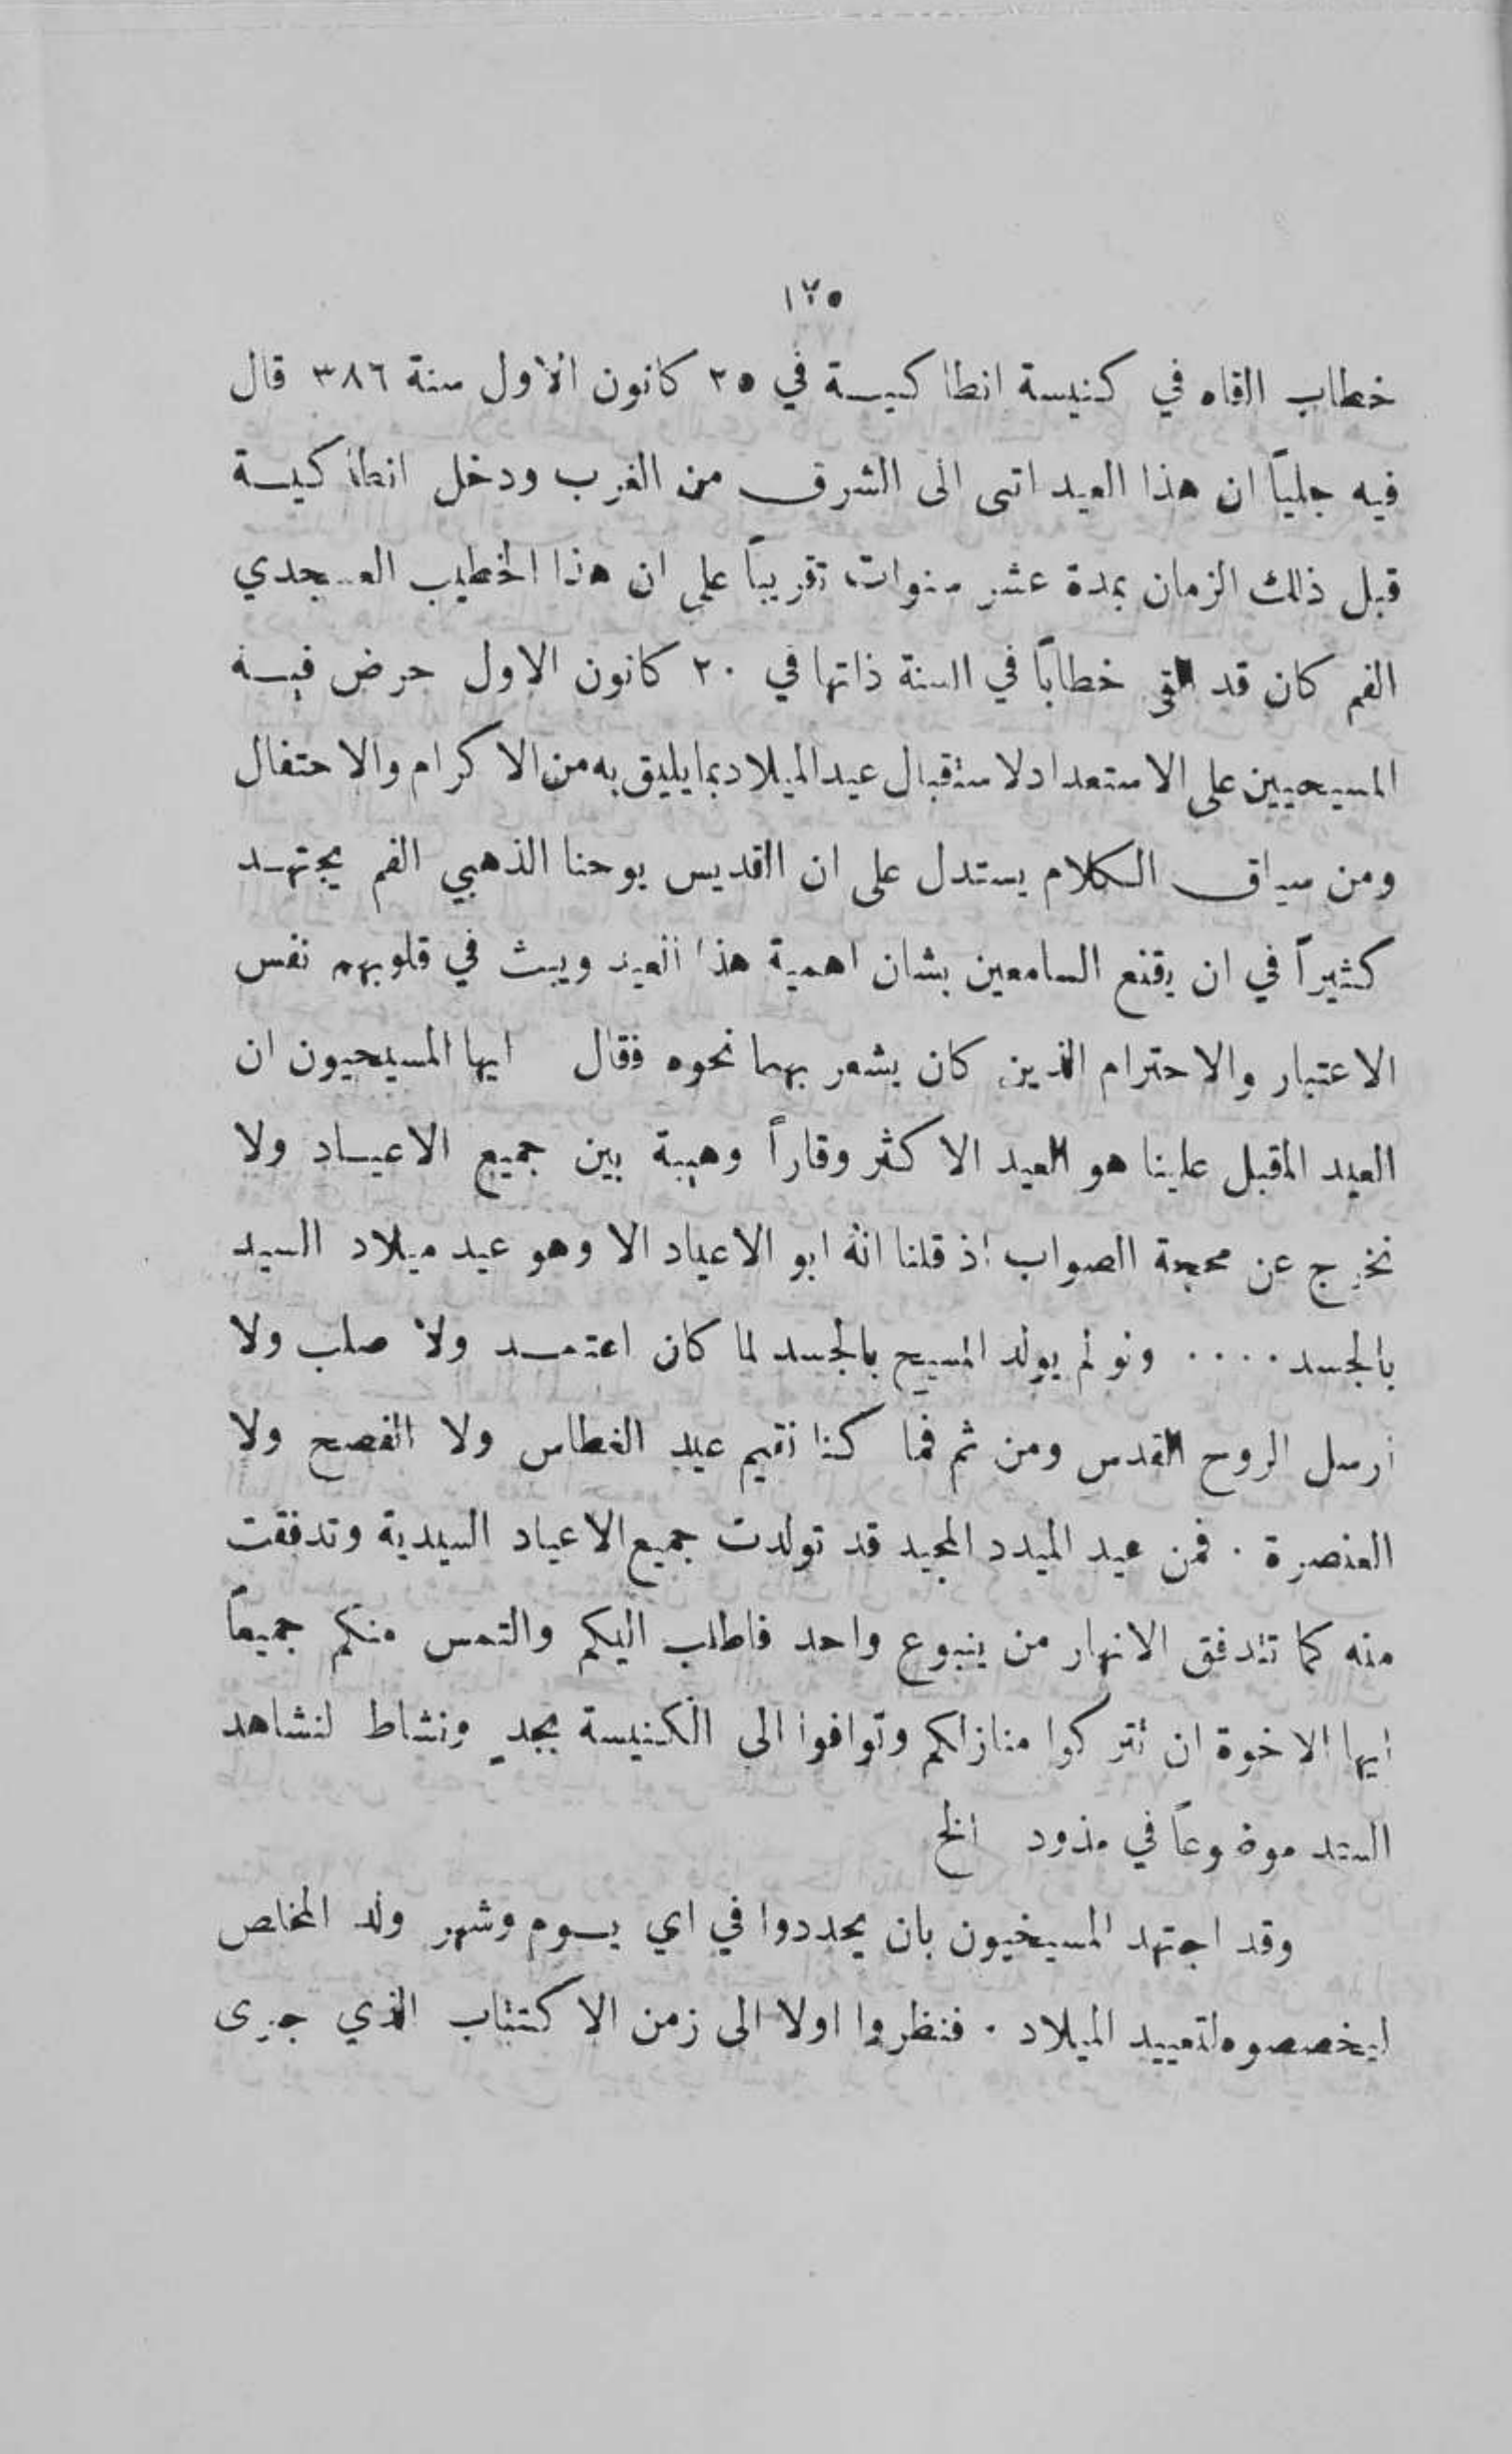 ١٢٥
خطاب القاه في كنيسة انطاكيـة في ٢٥ كانون الاول سنة ٣٨٦ قال
فيه جلياً ان هذا العيد اتى الى الشرق من الغرب ودخل انطاكيـة
قبل ذلك الزمان بمدة عشر سنوات تقريباً على ان هذا الخطيب العسجدي
الفم كان قد القى خطاباً في السنة ذاتها في ٢٠ كانون الاول حرض فيـه
المسيحيين على الاستعداد لاستقبال عيد الميلاد بما يليق به من الاكرام والاحتفال
ومن سياق الكلام يستدل على ان القديس يوحنا الذهبي الفم يجتهـد
كثيراً في ان يقنع السامعين بشان اهمية هذا العيد ويبث في قلوبهم نفس
الاعتبار والاحترام الذين كان يشعر بهما نحوه فقال ايها المسيحيون ان
العيد المقبل علينا هو العيد الاكثر وقاراً وهيبة بين جميع الاعيـاد ولا
نخرج عن محجة الصواب اذ قلنا انه ابو الاعياد الا وهو عيد ميلاد السيد
بالجسد ٠٠٠٠ ولو لم يولد المسيح بالجسد لما كان اعتمـد ولا صلب ولا
ارسل الروح القدس ومن ثم فما كنا نقيم عيد الغطاس ولا الفصح ولا
العنصرة ٠ فمن عيد الميدد المجيد قد تولدت جميع الاعياد السيدية وتدفقت
منه كما تتدفق الانهار من ينبوع واحد فاطلب اليكم والتمس منكم جميعاً
ايها الاخوة ان تتركوا منازلكم وتوافوا الى الكنيسة بجدٍ ونشاط لنشاهد
موضوعاً في مذود الخ
وقد اجتهد المسيحيون بان يحددوا في اي يـوم وشهر ولد المخلص
ليخصصوه لتعييد الميلاد ٠ فنظروا اولا الى زمن الاكتتاب الذي جرى